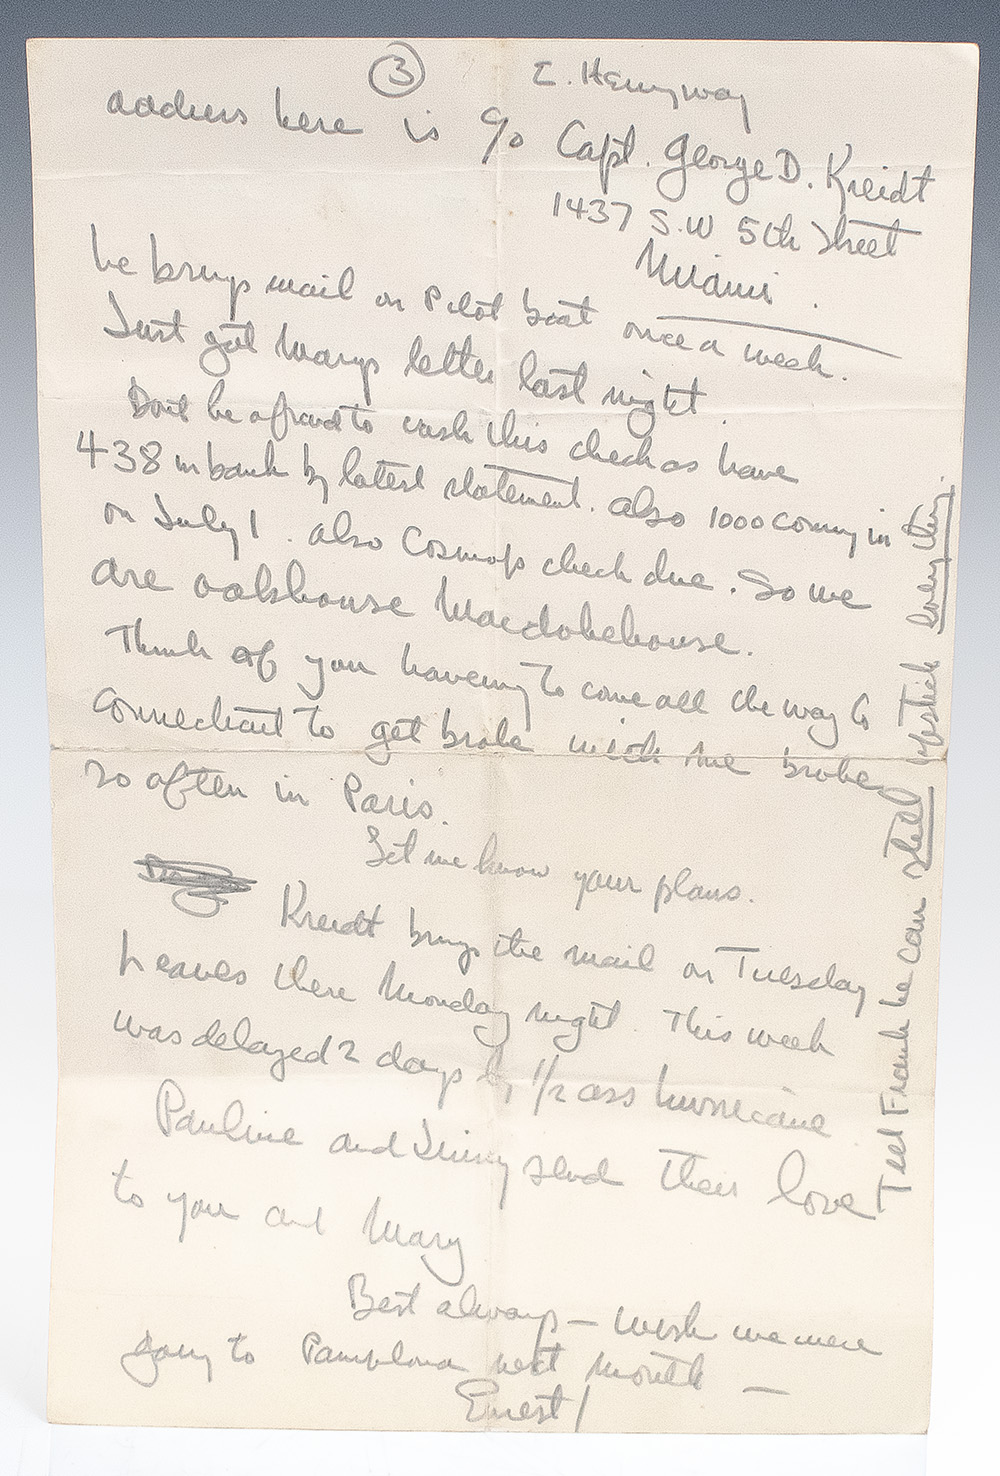 ③ E. Hemingway
address here is c/o Capt. George D. Kreidt
1437 S.W 5th Street
Miami.
he brings mail on Pilot boat once a week.
Just got Marys letter last night.
Dont be afraid to cash this check as have
438 in bank by latest statement. also 1000 coming in
on July 1. also Cosmop check due. So we
are oakhouse Macdokehouse.
Think of you haveing to come all the way to
Connecticut to get broke with me broke
so often in Paris.
Let me know your plans.
Kreidt brings the mail on Tuesday
Leaves there Monday night. This week
was delayed 2 days by 1/2 ass hurricane
Pauline and Jinny send their love
to you and Mary
Best always – wish we were
going to Pamplona next month –
Ernest /
Tell Frank he can still lipstick everything.